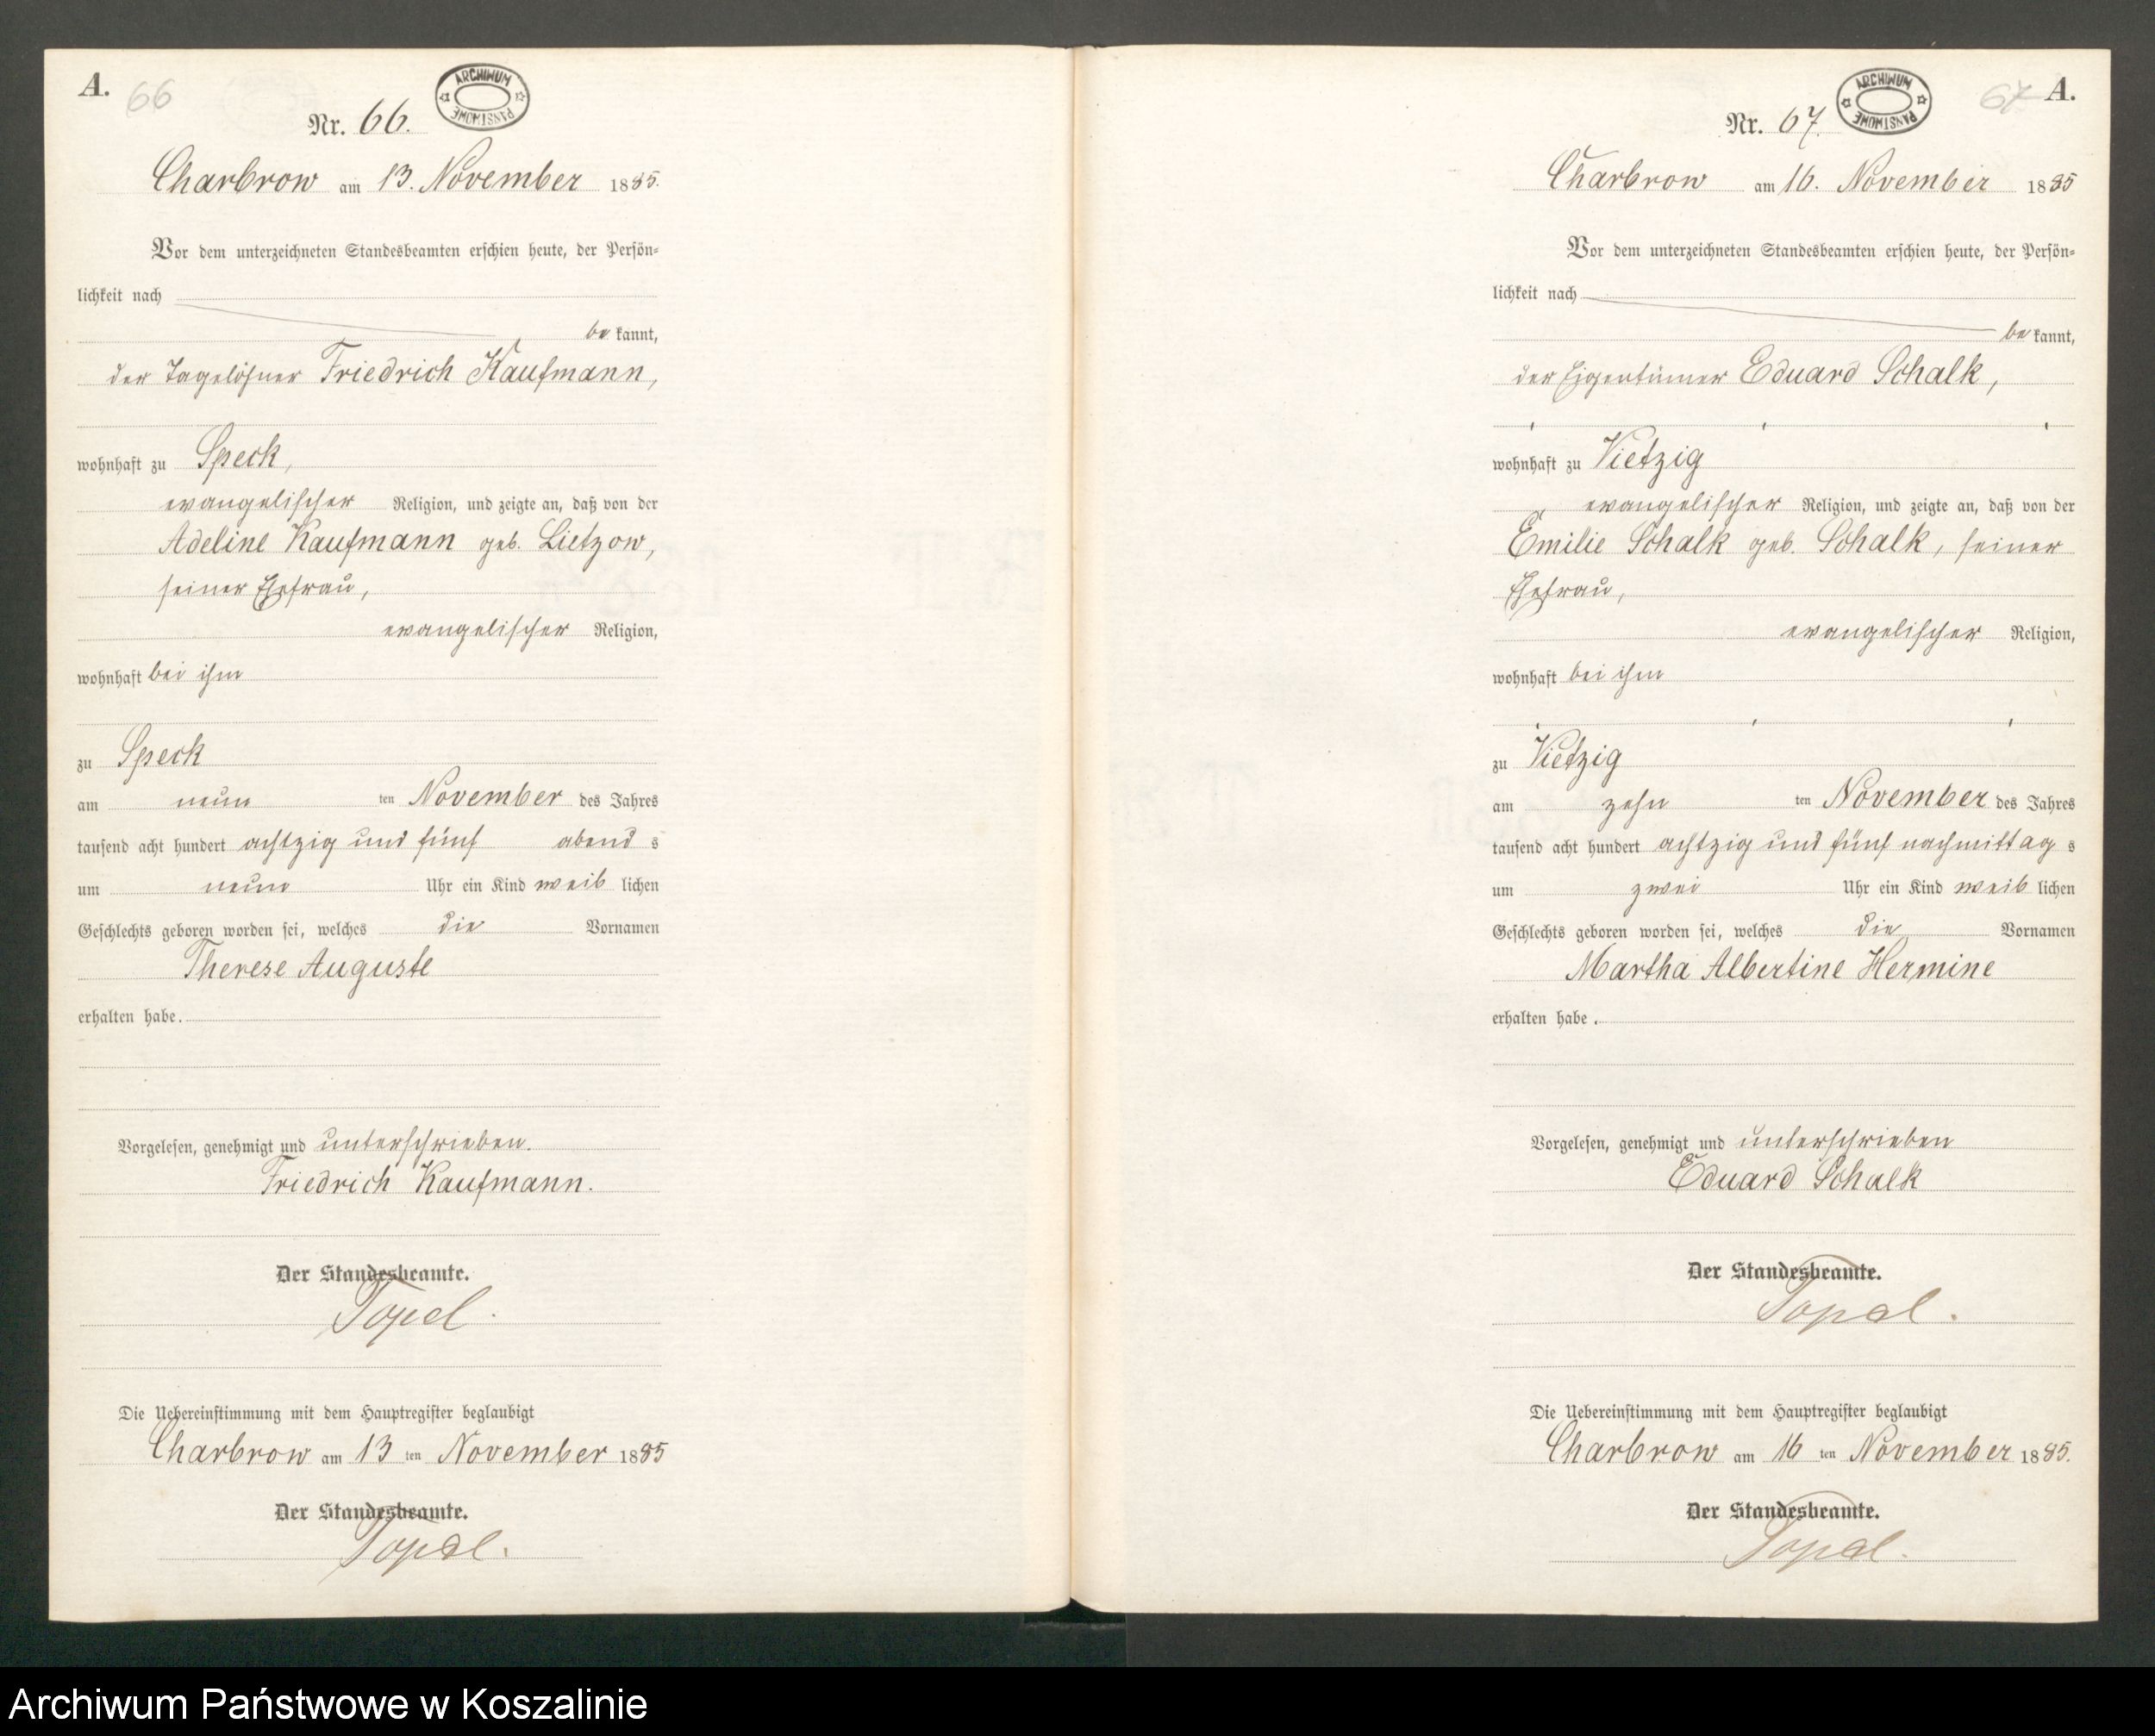 A.
66
ARCHIWUM PAŃSTWOWE
Nr. 66.
Charbrow am 13. November 1885.
Vor dem unterzeichneten Standesbeamten erschien heute, der Persön-
lichkeit nach
be kannt,
der Tagelöhner Friedrich Kaufmann,
wohnhaft zu Speck,
evangelischer Religion, und zeigte an, daß von der
Adeline Kaufmann geb. Lietzow,
seiner Ehefrau,
evangelischer Religion,
wohnhaft bei ihm
zu Speck
am neun ten November des Jahres
tausend acht hundert achtzig und fünf abend s
um neun Uhr ein Kind weib lichen
Geschlechts geboren worden sei, welches die Vornamen
Therese Auguste
erhalten habe.
Vorgelesen, genehmigt und unterschrieben.
Friedrich Kaufmann.
Der Standesbeamte.
Topel.
Die Uebereinstimmung mit dem Hauptregister beglaubigt
Charbrow am 13 ten November 1885
Der Standesbeamte.
Topel.
67 A.
ARCHIWUM PAŃSTWOWE
Nr. 67.
Charbrow am 16. November 1885
Vor dem unterzeichneten Standesbeamten erschien heute, der Persön-
lichkeit nach
be kannt,
der Eigentümer Eduard Schalk,
wohnhaft zu Vietzig
evangelischer Religion, und zeigte an, daß von der
Emilie Schalk geb. Schalk, seiner
Ehefrau,
evangelischer Religion,
wohnhaft bei ihm
zu Vietzig
am zehn ten November des Jahres
tausend acht hundert achtzig und fünf nachmittag s
um zwei Uhr ein Kind weib lichen
Geschlechts geboren worden sei, welches die Vornamen
Martha Albertine Hermine
erhalten habe.
Vorgelesen, genehmigt und unterschrieben
Eduard Schalk
Der Standesbeamte.
Topel.
Die Uebereinstimmung mit dem Hauptregister beglaubigt
Charbrow am 16 ten November 1885.
Der Standesbeamte.
Topel.
Archiwum Państwowe w Koszalinie